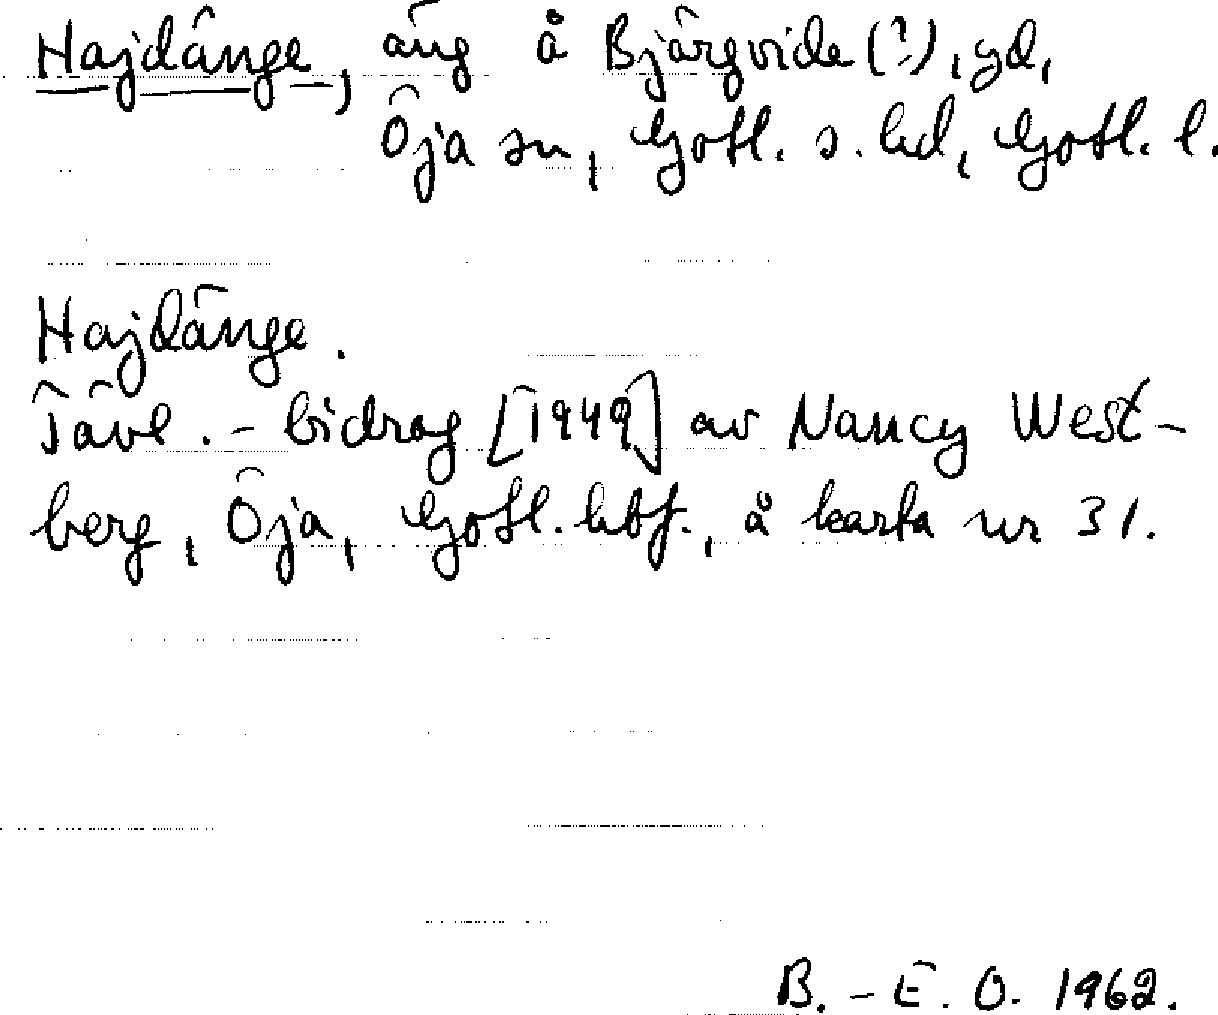 Hajdänge, äng å Bjärgvide (?), gd,
Öja sn, Gotl. s. hd, Gotl. l.
Hajdänge.
Tävl. - bidrag [1949] av Nancy West-
berg, Öja, Gotl. hbf., å karta nr 31.
B. - E. O. 1962.